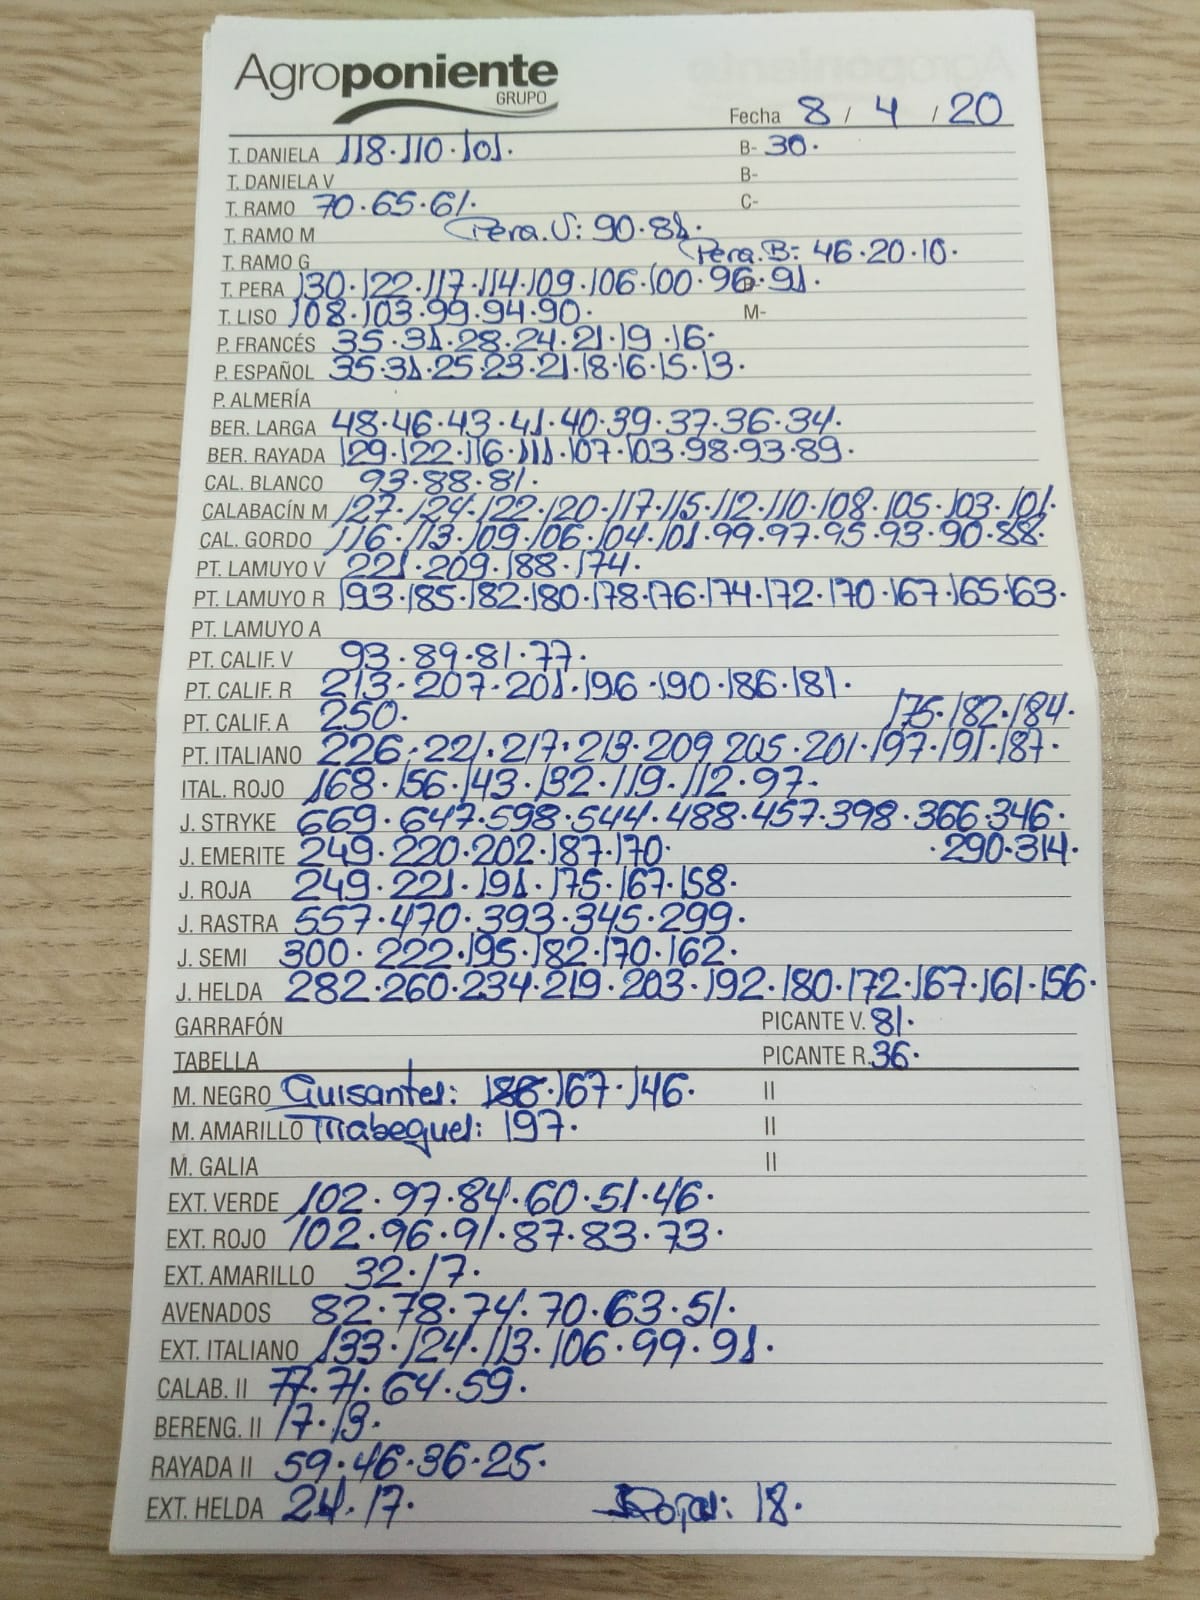 Agroponiente
GRUPO
Fecha 8 / 4 / 20
T. DANIELA 118·110·101. B- 30·
T. DANIELA V B-
T. RAMO 70·65·61. C-
T. RAMO M Pera.V: 90·81.
T. RAMO G Pera.B: 46·20·10·
T. PERA 130·122·117·114·109·106·100·96·91·
T. LISO 108·103·99·94·90· M-
P. FRANCÉS 35·31·28·24·21·19·16·
P. ESPAÑOL 35·31·25·23·21·18·16·15·13·
P. ALMERÍA
BER. LARGA 48·46·43·41·40·39·37·36·34·
BER. RAYADA 129·122·116·111·107·103·98·93·89·
CAL. BLANCO 93·88·81·
CALABACÍN M 127·124·122·120·117·115·112·110·108·105·103·101·
CAL. GORDO 116·113·109·106·104·101·99·97·95·93·90·88·
PT. LAMUYO V 221·209·188·174·
PT. LAMUYO R 193·185·182·180·178·176·174·172·170·167·165·163·
PT. LAMUYO A
PT. CALIF. V 93·89·81·77·
PT. CALIF. R 213·207·201·196·190·186·181·
PT. CALIF. A 250· 175·182·184·
PT. ITALIANO 226·221·217·213·209 205·201·197·191·187·
ITAL. ROJO 168·156·143·132·119·112·97·
J. STRYKE 669·647·598·544·488·457·398·366·346·
J. EMERITE 249·220·202·187·170· ·290·314·
J. ROJA 249·221·191·175·167·158·
J. RASTRA 557·470·393·345·299·
J. SEMI 300·222·195·182·170·162·
J. HELDA 282·260·234·219·203·192·180·172·167·161·156·
GARRAFÓN PICANTE V. 81·
TABELLA PICANTE R. 36·
M. NEGRO Guisantes: 186·167·146· II
M. AMARILLO Trabeques: 197· II
M. GALIA II
EXT. VERDE 102·97·84·60·51·46·
EXT. ROJO 102·96·91·87·83·73·
EXT. AMARILLO 32·17·
AVENADOS 82·78·74·70·63·51·
EXT. ITALIANO 133·124·113·106·99·91·
CALAB. II 77·71·64·59·
BERENG. II 17·13·
RAYADA II 59·46·36·25·
EXT. HELDA 24·17· Rojas: 18·